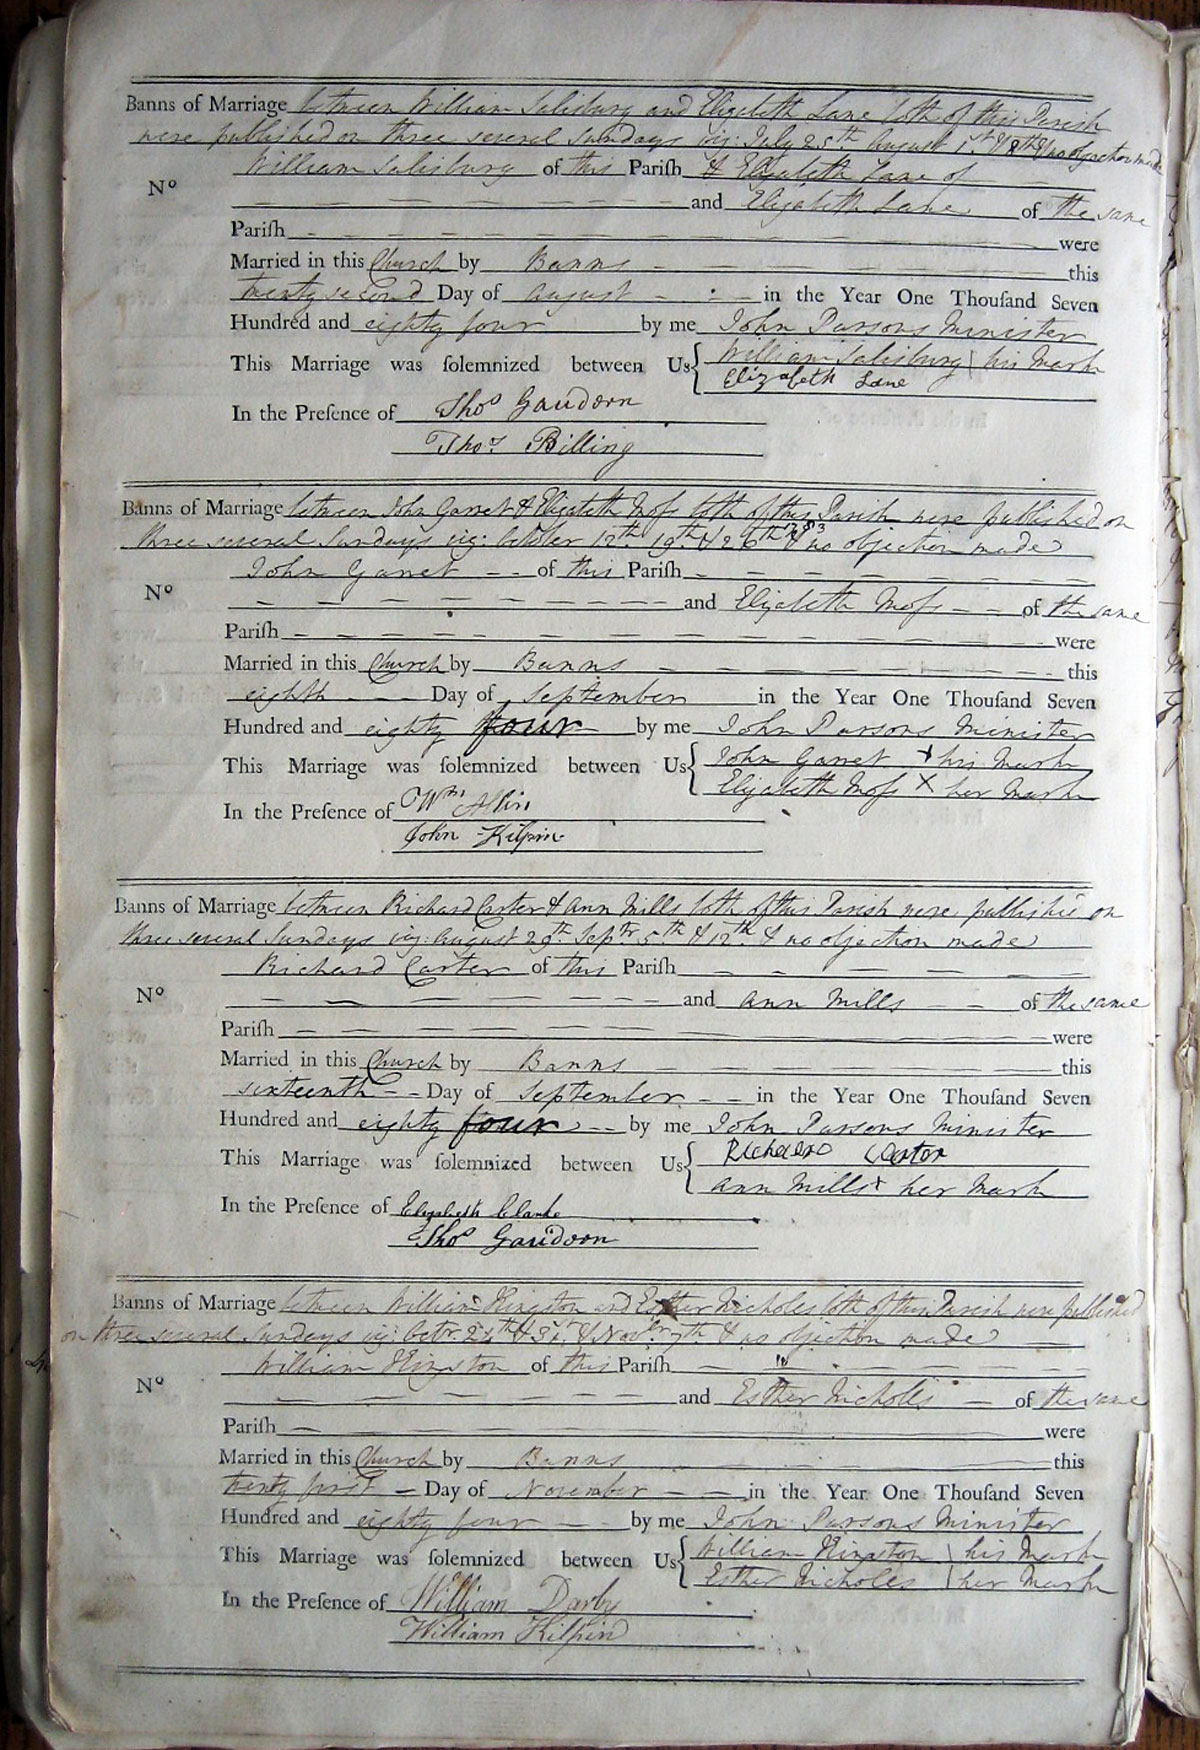 Banns of Marriage between William Salisbury and Elizabeth Lane both of this Pariſh
were published on three several Sundays viz: July 25th August 1st & 8th & no objection made
William Salisbury of this Pariſh & Elizabeth Lane of
No
and Elizabeth Lane of the same
Pariſh were
Married in this Church by Banns this
twenty second Day of August in the Year One Thouſand Seven
Hundred and eighty four by me John Parsons Minister
This Marriage was ſolemnized between Us { William Salisbury \ his Mark
Elizabeth Lane
In the Preſence of Thos Gaudorn
Thos Billing
Banns of Marriage between John Garret & Elizabeth Moſs both of this Parish were published on
three several Sundays viz: October 12th 19th & 26th 1783 & no objection made
John Garret of this Pariſh
No
and Elizabeth Moſs of the same
Pariſh were
Married in this Church by Banns this
eighth Day of September in the Year One Thouſand Seven
Hundred and eighty four by me John Parsons Minister
This Marriage was ſolemnized between Us { John Garret + his Mark
Elizabeth Moſs X her Mark
In the Preſence of Wm Allin
John Kilpin
Banns of Marriage between Richard Carter & Ann Mills both of this Parish were publishd on
three several Sundays viz: August 29th Septr 5th & 12th & no objection made
Richard Carter of this Pariſh
No
and Ann Mills of the same
Pariſh were
Married in this Church by Banns this
sixteenth Day of September in the Year One Thouſand Seven
Hundred and eighty four by me John Parsons Minister
This Marriage was ſolemnized between Us { Richard Carter
Ann Mills x her Mark
In the Preſence of Elizabeth Clarke
Thos Gaudoon
Banns of Marriage between William Kingston and Esther Nicholes both of this Parish were published
on three several Sundays viz: Octr. 24th & 31st & Novbr 7th & no objection made
William Kingston of this Pariſh
No
and Esther Nicholls of the same
Pariſh were
Married in this Church by Banns this
twenty first Day of November in the Year One Thouſand Seven
Hundred and eighty four by me John Parsons Minister
This Marriage was ſolemnized between Us { William Kingston \ his Mark
Esther Nicholes | her Mark
In the Preſence of William Darby
William Kilpin